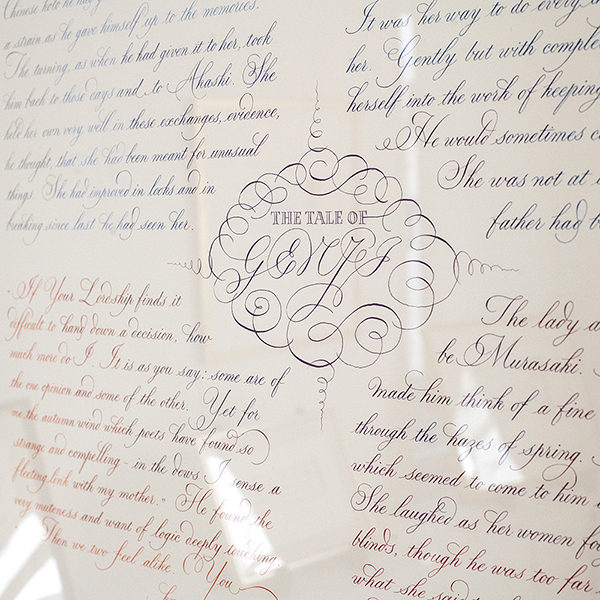 Chinese koto he had
a strain as he gave himself up to the memories.
The turning, as when he had given it to her, took
him back to those days and to Akashi. She
held her own very well in these exchanges, evidence,
he thought, that she had been meant for unusual
things. She had improved in looks and in
breaking since last he had seen her.
It was her way to do every
her. Gently but with comple
herself into the work of keeping
He would sometimes c
She was not at
father had b
THE TALE OF
GENJI
"If Your Lordship finds it
difficult to hand down a decision, how
much more do I. It is as you say: some are of
the one opinion and some of the other. Yet for
me the autumn wind which poets have found so
strange and compelling - in the dews I sense a
fleeting link with my mother." He found the
very muteness and want of logic deeply touching.
Then we two feel alike. You
The lady a
be Murasaki.
made him think of a fine
through the hazes of spring.
which seemed to come to him
She laughed as her women fou
blinds, though he was too far
what she said